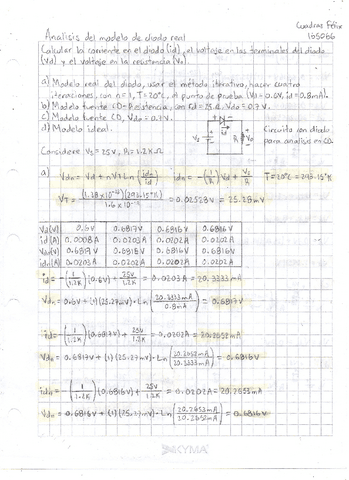 Cuadras Félix
165086
Analisis del modelo de diodo real
Calcular la corriente en el diodo (id), el voltaje en las terminales del diodo
(Vd) y el voltaje en la resistencia (Vo).
a) Modelo real del diodo, usar el método iterativo, hacer cuatro
iteraciones, con n=1, T=20°C, el punto de prueba (Vd=0.6V, id=0.8mA).
b) Modelo fuente CD-Resistencia, con rd=15Ω, Vdo=0.7V.
c) Modelo fuente CD, Vdo=0.7V.
d) Modelo ideal.
Circuito con diodo
para analisis en CD.
Considere Vs=25V, R1=1.2KΩ
a) Vdn = Vd + nVT Ln(idn/id) idn = -(1/R1)Vd + Vs/R1 T=20°C=293.15°K
VT = (1.38x10⁻²³)(293.15°K)/1.6x10⁻¹⁹ = 0.02528V = 25.28mV
Vd(V) 0.6V 0.6817V 0.6816V 0.6816V
id(A) 0.0008A 0.0203A 0.0202A 0.0202A
Vdn(V) 0.6817V 0.6816V 0.6816V 0.6816V
idn(A) 0.0203A 0.0202A 0.0202A 0.0202A
id = -(1/1.2K)(0.6V) + 25V/1.2K = 0.0203A = 20.3333mA
Vdn = 0.6V + (1)(25.27mV)·Ln(20.3333mA/0.8mA) = 0.6817V
id = -(1/1.2K)(0.6817V) + 25V/1.2K = 0.0202A = 20.2652mA
Vdn = 0.6817V + (1)(25.27mV)·Ln(20.2652mA/20.3333mA) = 0.6816V
idn = -(1/1.2K)(0.6816V) + 25V/1.2K = 0.0202A = 20.2653mA
Vdn = 0.6816V + (1)(25.27mV)·Ln(20.2653mA/20.2652mA) = 0.6816V